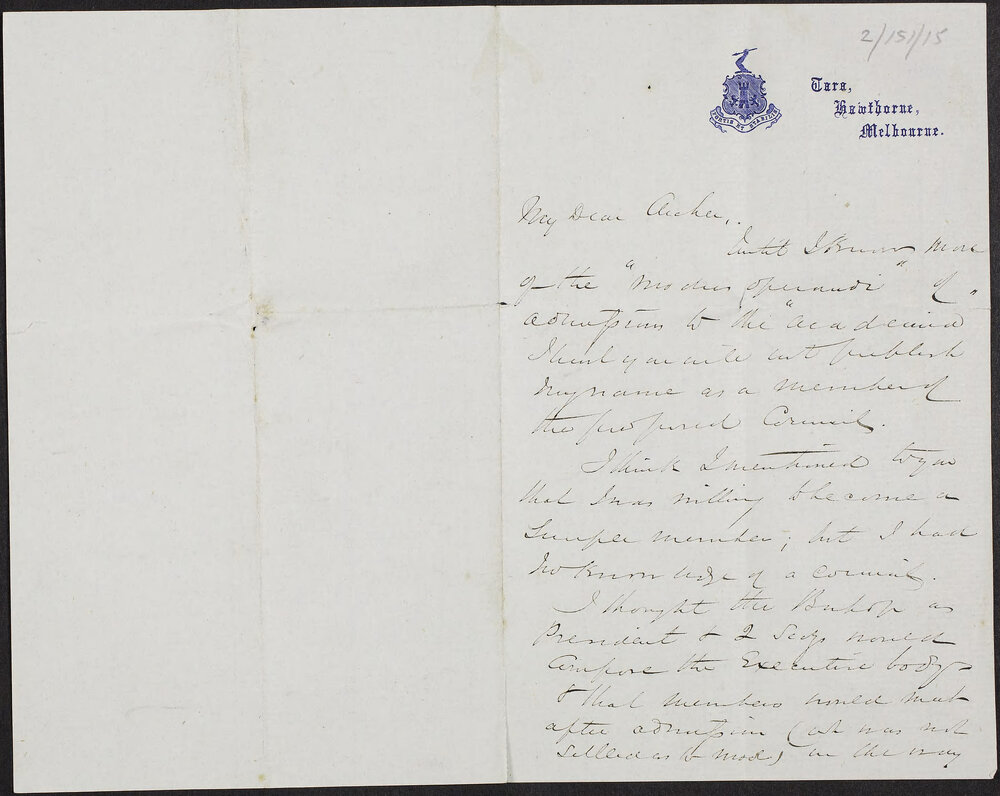 2/151/15
FORTIS ET STABILIS
Tara,
Hawthorne,
Melbourne.
My Dear Archer,
Until I know more
of the "modus operandi" of
admission to the "Academia"
I trust you will not publish
my name as a member of
the proposed Council.
I think I mentioned to you
that I was willing to become a
simple member; but I had
no knowledge of a council.
I thought the Bishop as
President & 2 Secys would
compose the Executive body
& that members would meet
after admission ( was not
settled as to mode) in the way